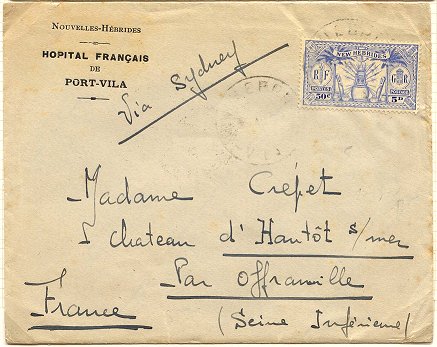 NOUVELLES-HÉBRIDES
HOPITAL FRANÇAIS
DE
PORT-VILA
Via Sydney
NEW HEBRIDES
R F
G R
POSTES
POSTAGE
50c
5D
Madame Crépet
Chateau d'Hautôt s/mer
Par Offranville
France
(Seine Inférieure)